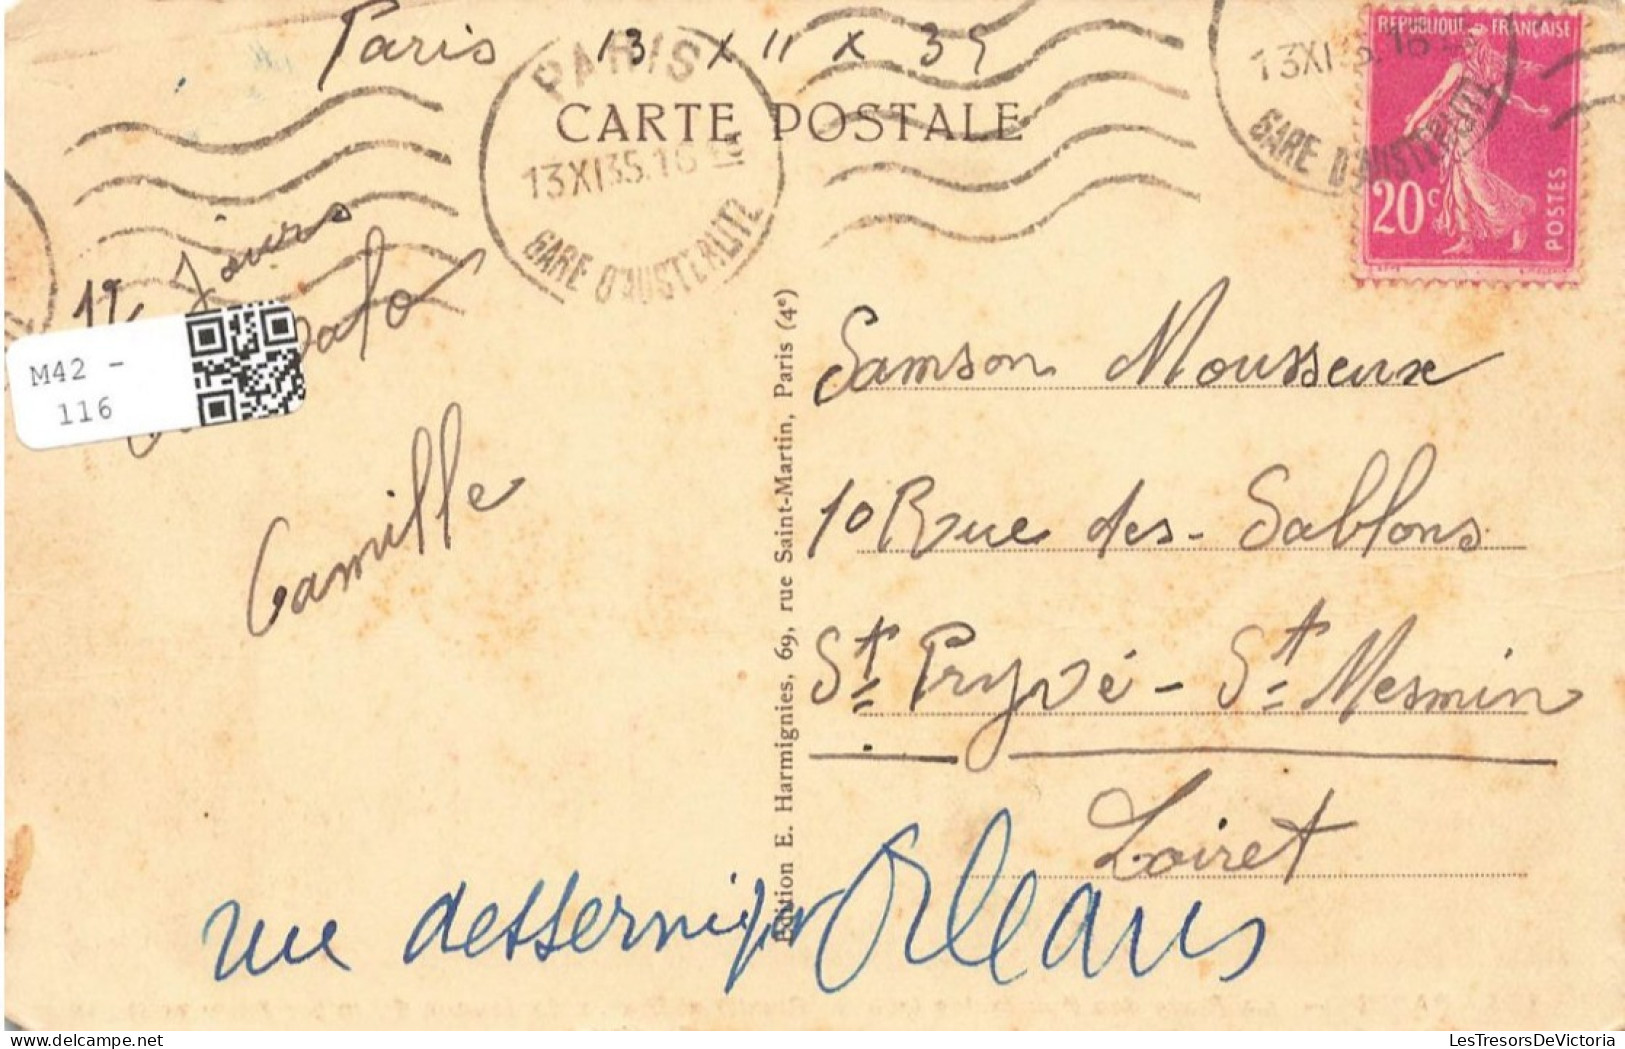 Paris 13 XII X 35
PARIS
13XI35.16
GARE D'AUSTERLITZ
CARTE POSTALE
13XI35.16
GARE D'AUSTERLITZ
REPUBLIQUE FRANÇAISE
20c
POSTES
Jours
M42 -
116
Camille
Samson Mousseux
10 Rue des Sablons
St Pryvé - St Mesmin
Loiret
Edition E. Harmignies, 69, rue Saint-Martin, Paris (4e)
rue Orleans
LesTresorsDeVictoria